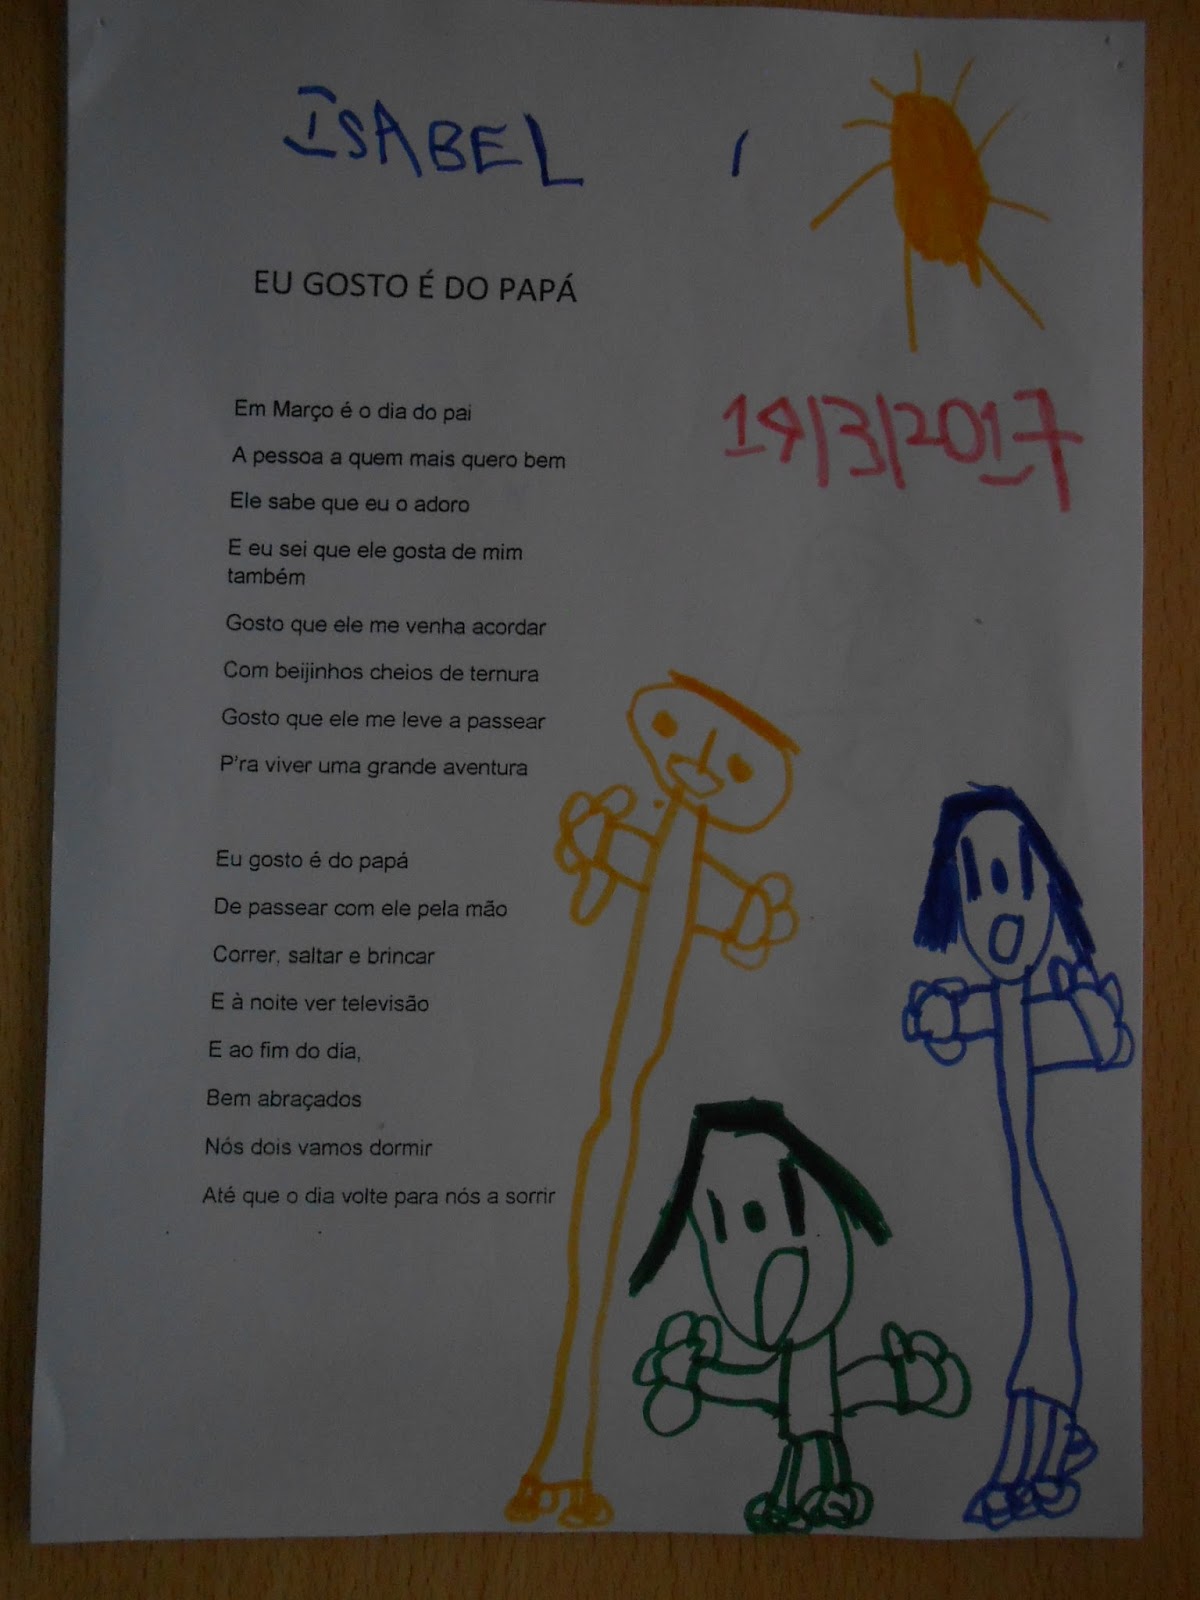 ISABEL
EU GOSTO É DO PAPÁ
Em Março é o dia do pai
A pessoa a quem mais quero bem
Ele sabe que eu o adoro
E eu sei que ele gosta de mim
também
Gosto que ele me venha acordar
Com beijinhos cheios de ternura
Gosto que ele me leve a passear
P'ra viver uma grande aventura
Eu gosto é do papá
De passear com ele pela mão
Correr, saltar e brincar
E à noite ver televisão
E ao fim do dia,
Bem abraçados
Nós dois vamos dormir
Até que o dia volte para nós a sorrir